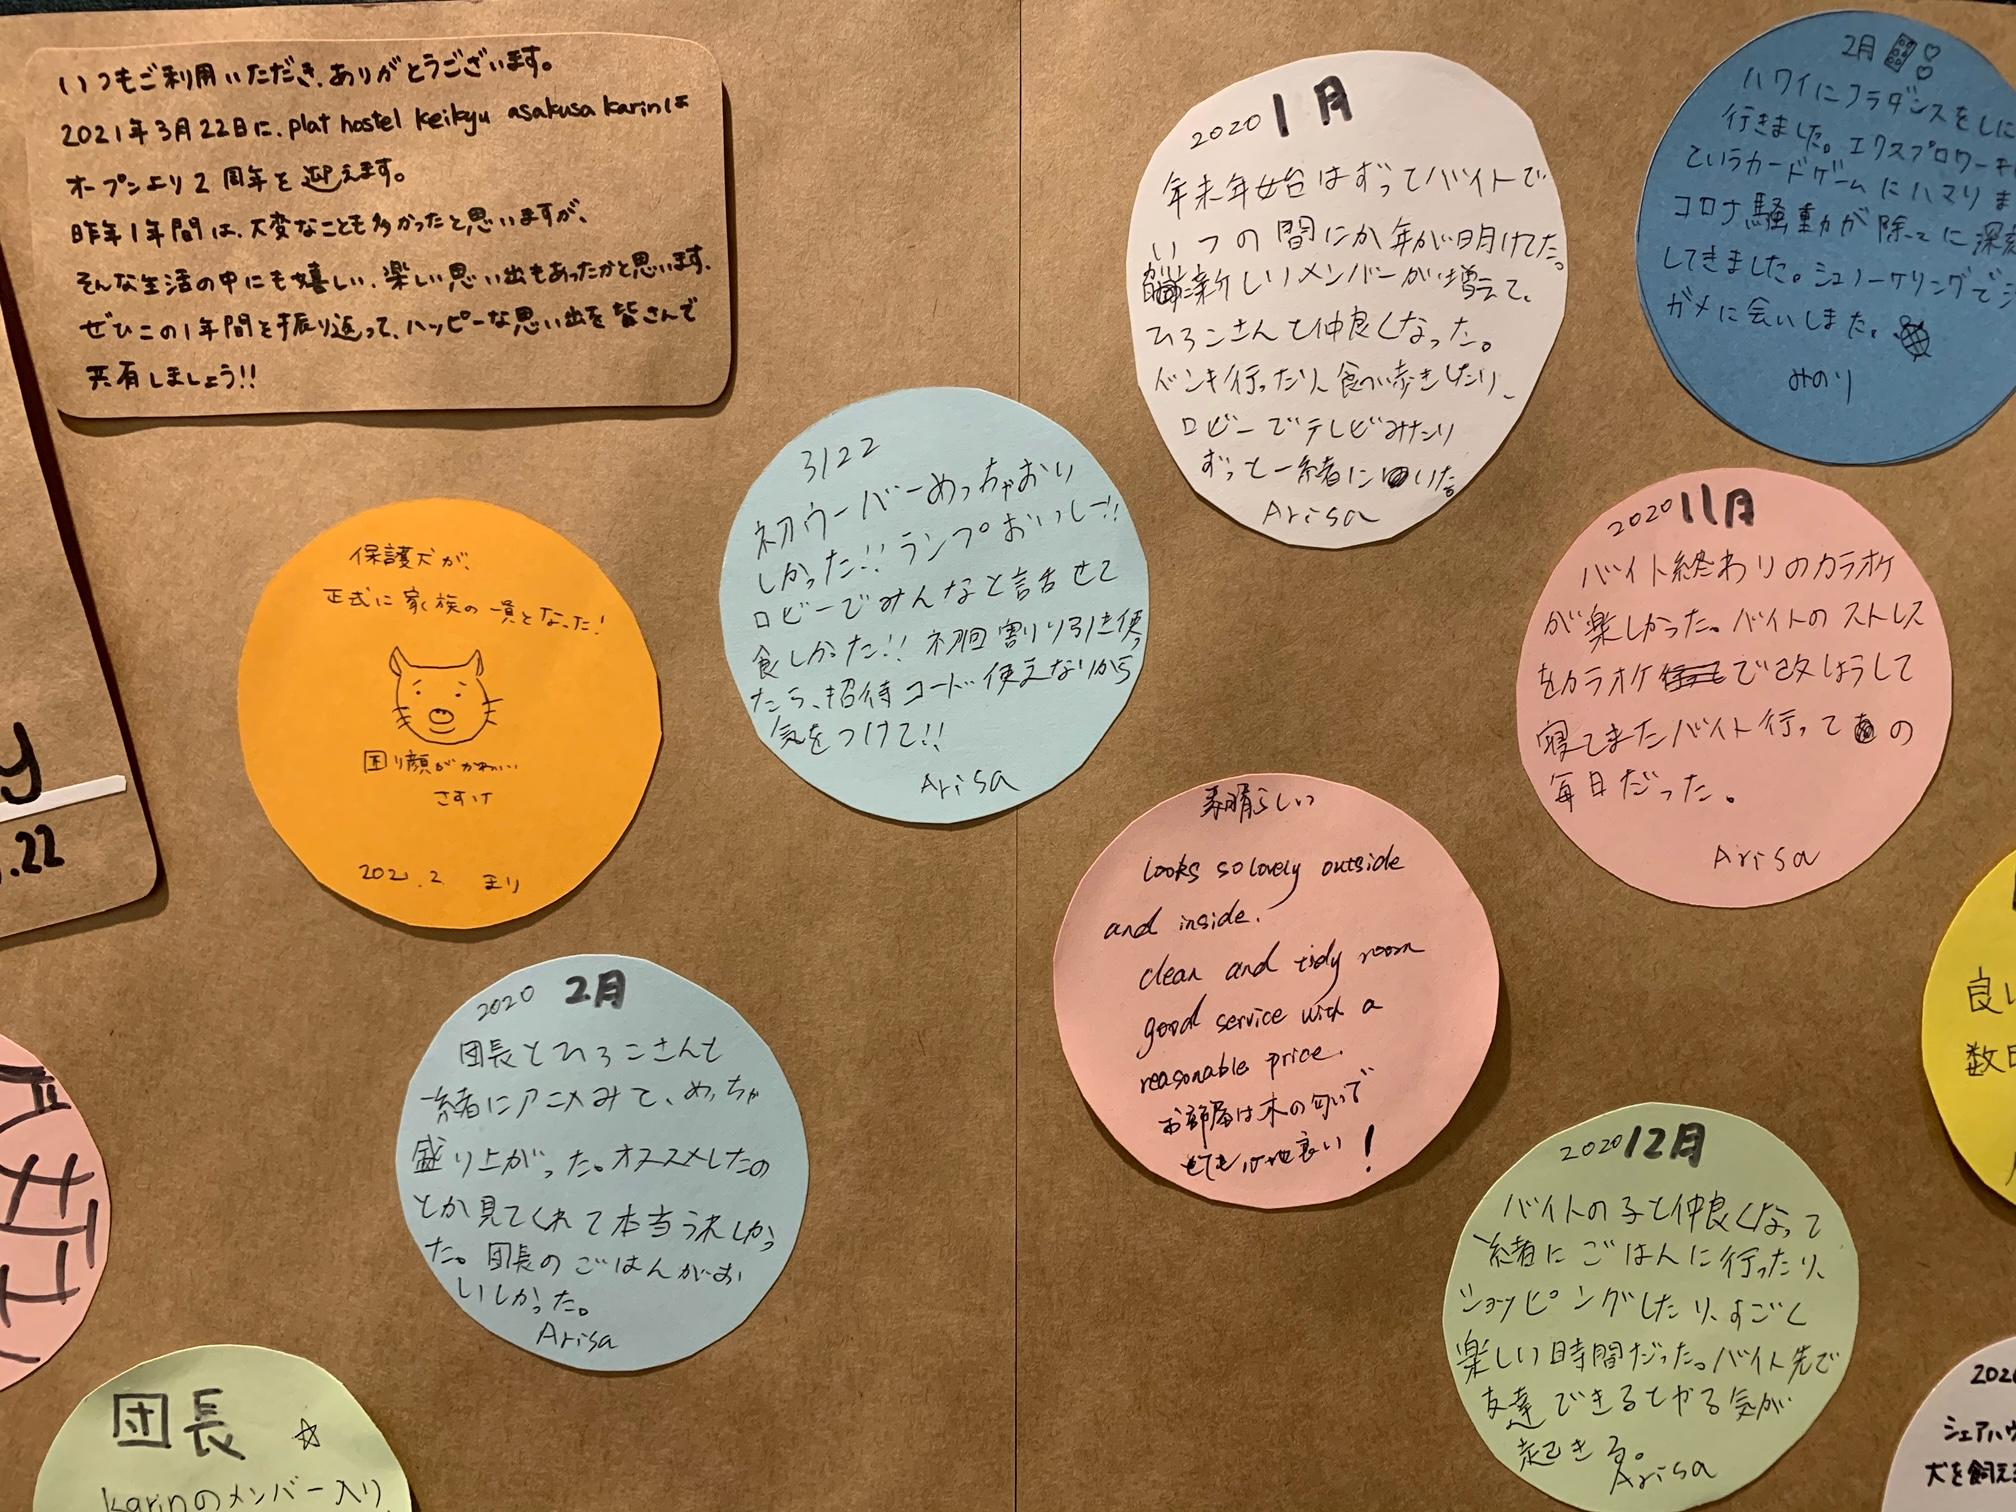 いつもご利用いただき、ありがとうございます。
2021年3月22日に、plat hostel keikyu asakusa karinは
オープンより2周年を迎えます。
昨年1年間は、大変なことも多かったと思いますが、
そんな生活の中にも嬉しい、楽しい思い出もあったかと思います。
ぜひこの1年間を振り返って、ハッピーな思い出を皆さんで
共有しましょう!!
y
.22
保護犬が、
正式に家族の一員となった!
困り顔がかわいい
さすけ
2021.2 まり
3/22
初ウーバーめっちゃおい
しかった!! ランプおいしー!!
ロビーでみんなと話せて
食しかった!! 初回割り引き使っ
たら、招待コード使えないから
気をつけて!!
Arisa
2020 1月
年末年始はずってバイトで
いつの間にか年が明けてた。
新しいメンバーが増えて、
ひろこさんと仲良くなった。
ドンキ行ったり、食べ歩きしたり、
ロビーでテレビみたり
ずっと一緒にいた。
Arisa
2月
ハワイにフラダンスをしに
行きました。エクスプロワーキ
というカードゲームにハマりま
コロナ騒動が除々に深刻
してきました。シュノーケリングで
ガメに会いしました。
みのり
2020 11月
バイト終わりのカラオケ
が楽しかった。バイトのストレス
をカラオケで改しょうして
寝てまたバイト行っての
毎日だった。
Arisa
素晴らしい
Looks so lovely outside
and inside.
clean and tidy room
good service with a
reasonable price.
お部屋は木の匂いで
とても心地良い!
2020 2月
団長とひろこさんと
一緒にアニメみて、めっちゃ
盛り上がった。オススメしたの
とか見てくれて本当うれしかっ
た。団長のごはんがお
いしかった。
Arisa
2020 12月
バイトの子と仲良くなって
一緒にごはんに行ったり、
ショッピングしたり、すごく
楽しい時間だった。バイト先で
友達できるとやる気が
起きる。
Arisa
団長 ☆
karinのメンバー入り
良い
数日
202
シェアハウ
犬を飼え